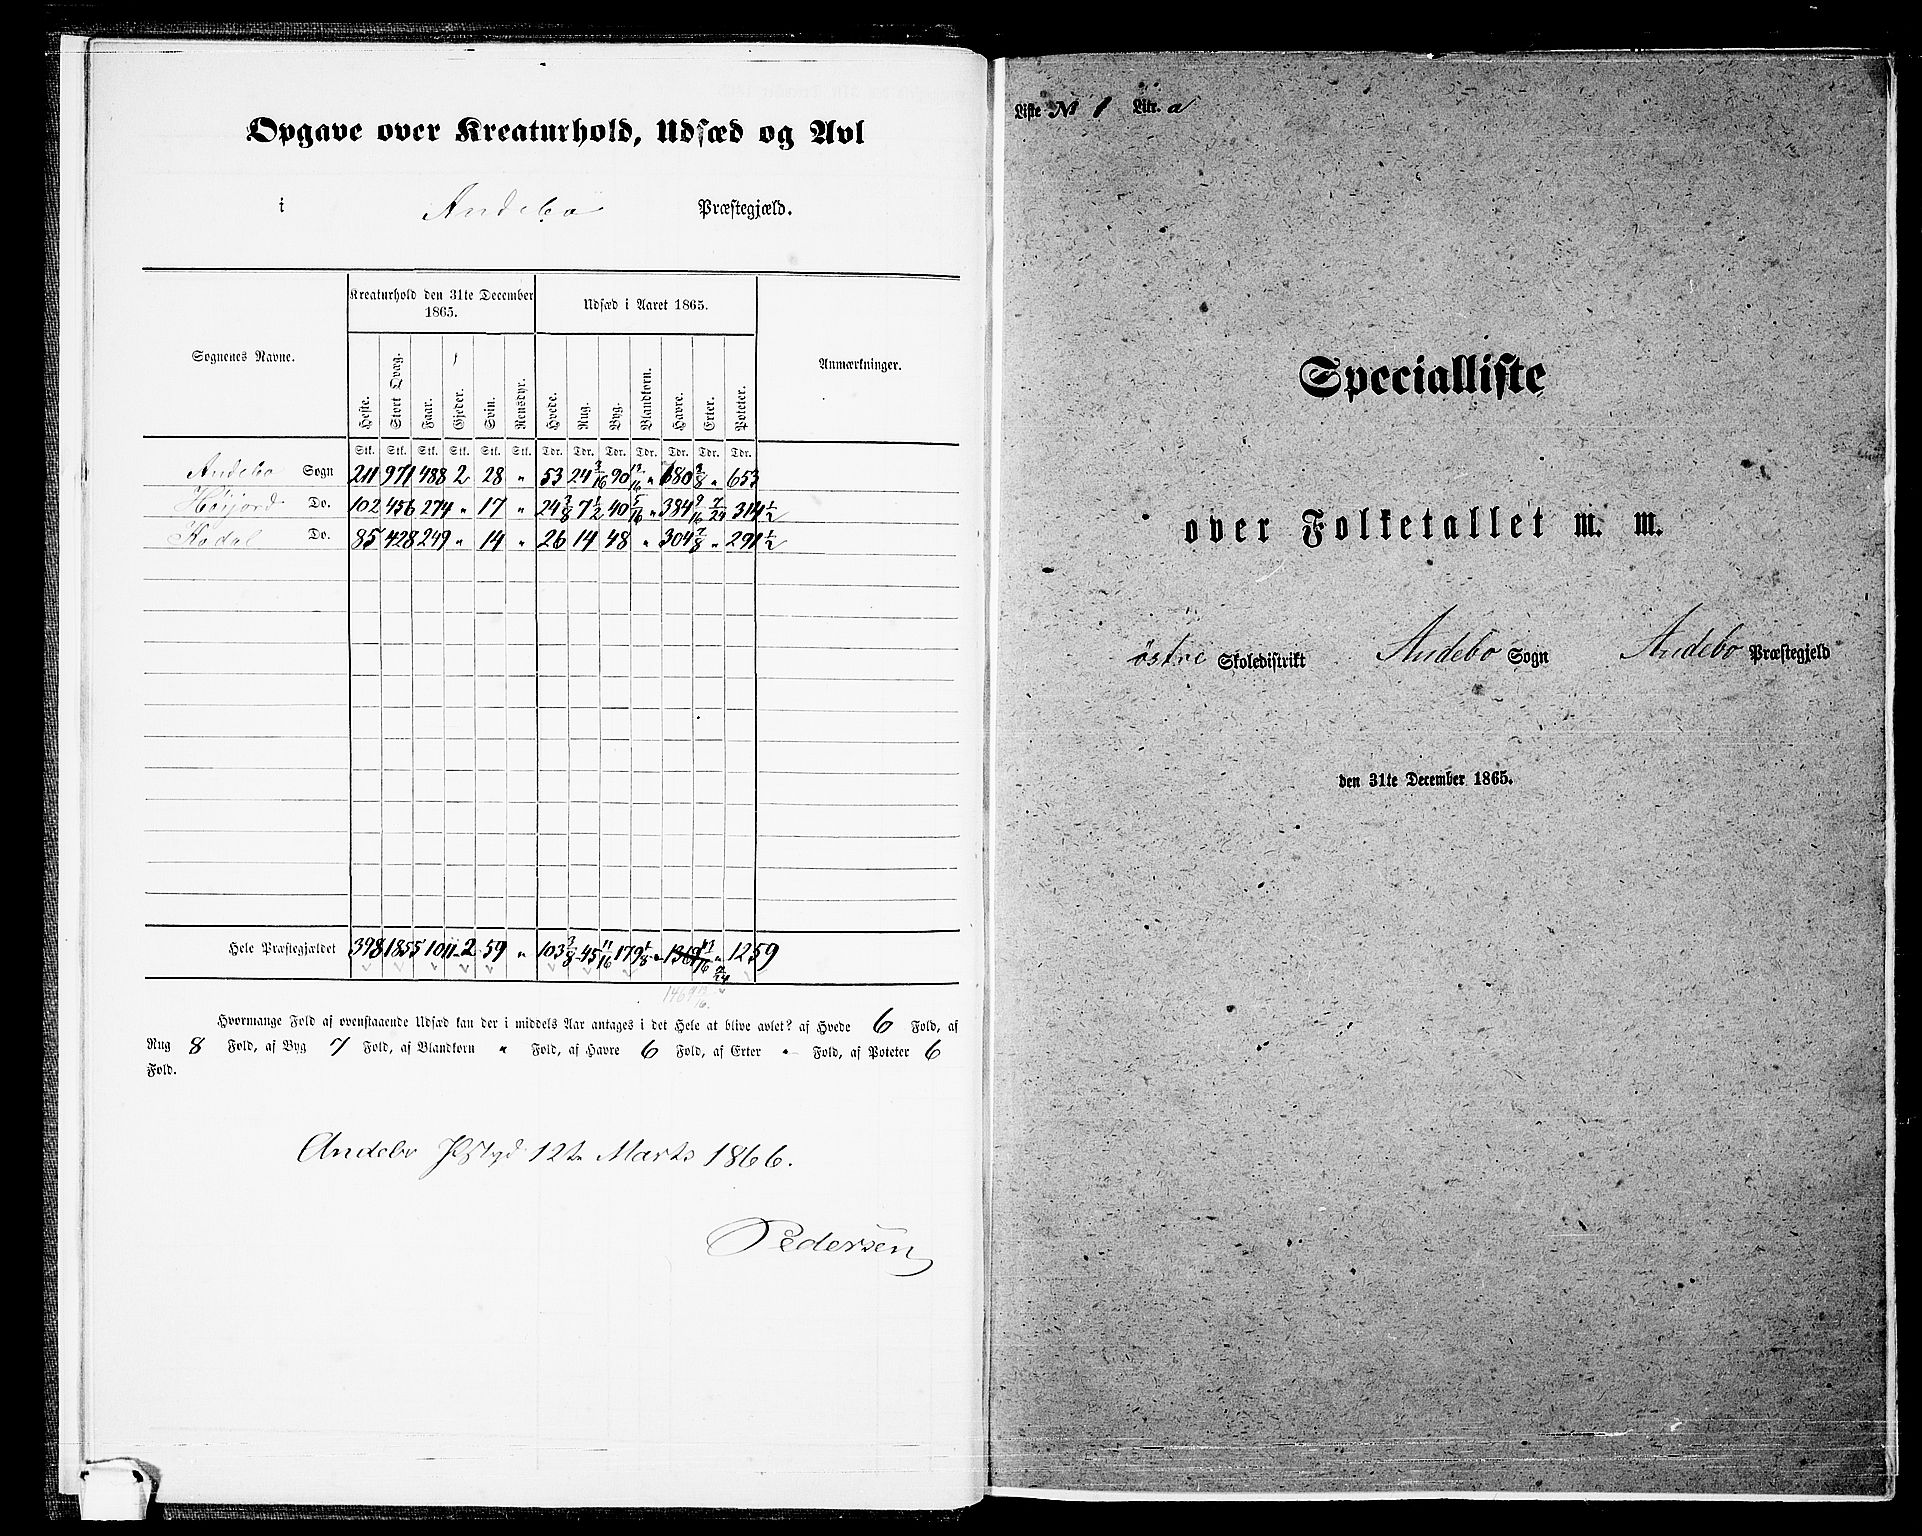 Opgave over Kreaturhold, Udsæd og Avl
i Andebo Præstegjæld.
Sognenes Navne. Kreaturhold den 31te December 1865. Udsæd i Aaret 1865. Anmærkninger.
Heste. Stort Qvæg. Faar. Gjeder. Svin. Rensdyr. Hvede. Rug. Byg. Blandkorn. Havre. Erter. Poteter.
Stk. Stk. Stk. Stk. Stk. Stk. Tdr. Tdr. Tdr. Tdr. Tdr. Tdr. Tdr.
Andebo Sogn 211 971 488 2 28 " 53 24 3/16 90 13/16 " 680 3/8 " 653
Høijord Do. 102 456 274 " 17 " 24 3/8 7 1/2 40 5/16 " 384 9/16 7/24 314 1/2
Kodal Do. 85 428 249 " 14 " 26 14 48 " 304 7/8 " 291 1/2
Hele Præstegjældet 398 1855 1011 2 59 " 103 3/8 45 11/16 179 1/8 " 1369 13/16 " 7/24 1259
Hvormange Fold af ovenstaaende Udsæd kan der i middels Aar antages i det Hele at blive avlet? af Hvede 6 Fold, af
Rug 8 Fold, af Byg 7 Fold, af Blandkorn " Fold, af Havre 6 Fold, af Erter " Fold, af Poteter 6
Fold.
Andebo 12te Marts 1866.
Pedersen
Liste No 1 Litr. a
Specialliste
over Folketallet m. m.
østre Skoledistrikt Andebo Sogn Andebo Præstegjeld
den 31te December 1865.